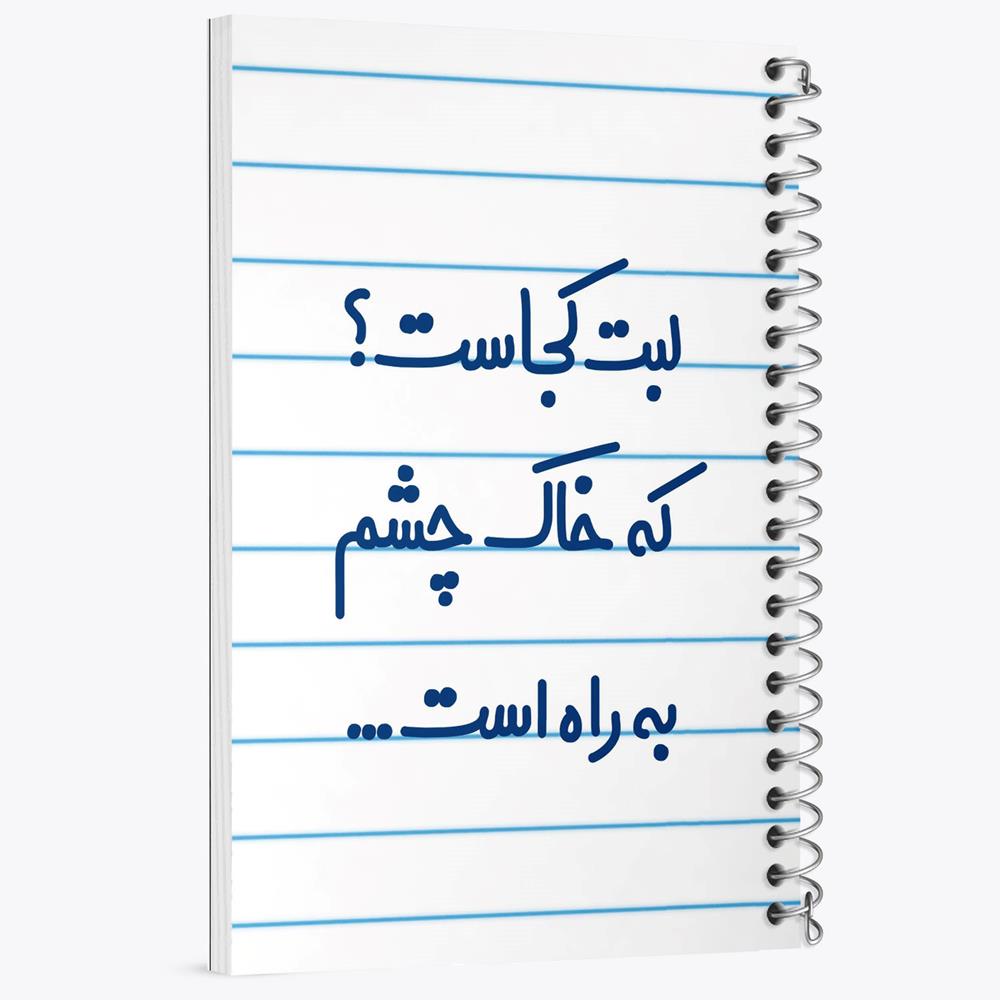 لبت کجاست؟
که خاک چشم
به راه است...